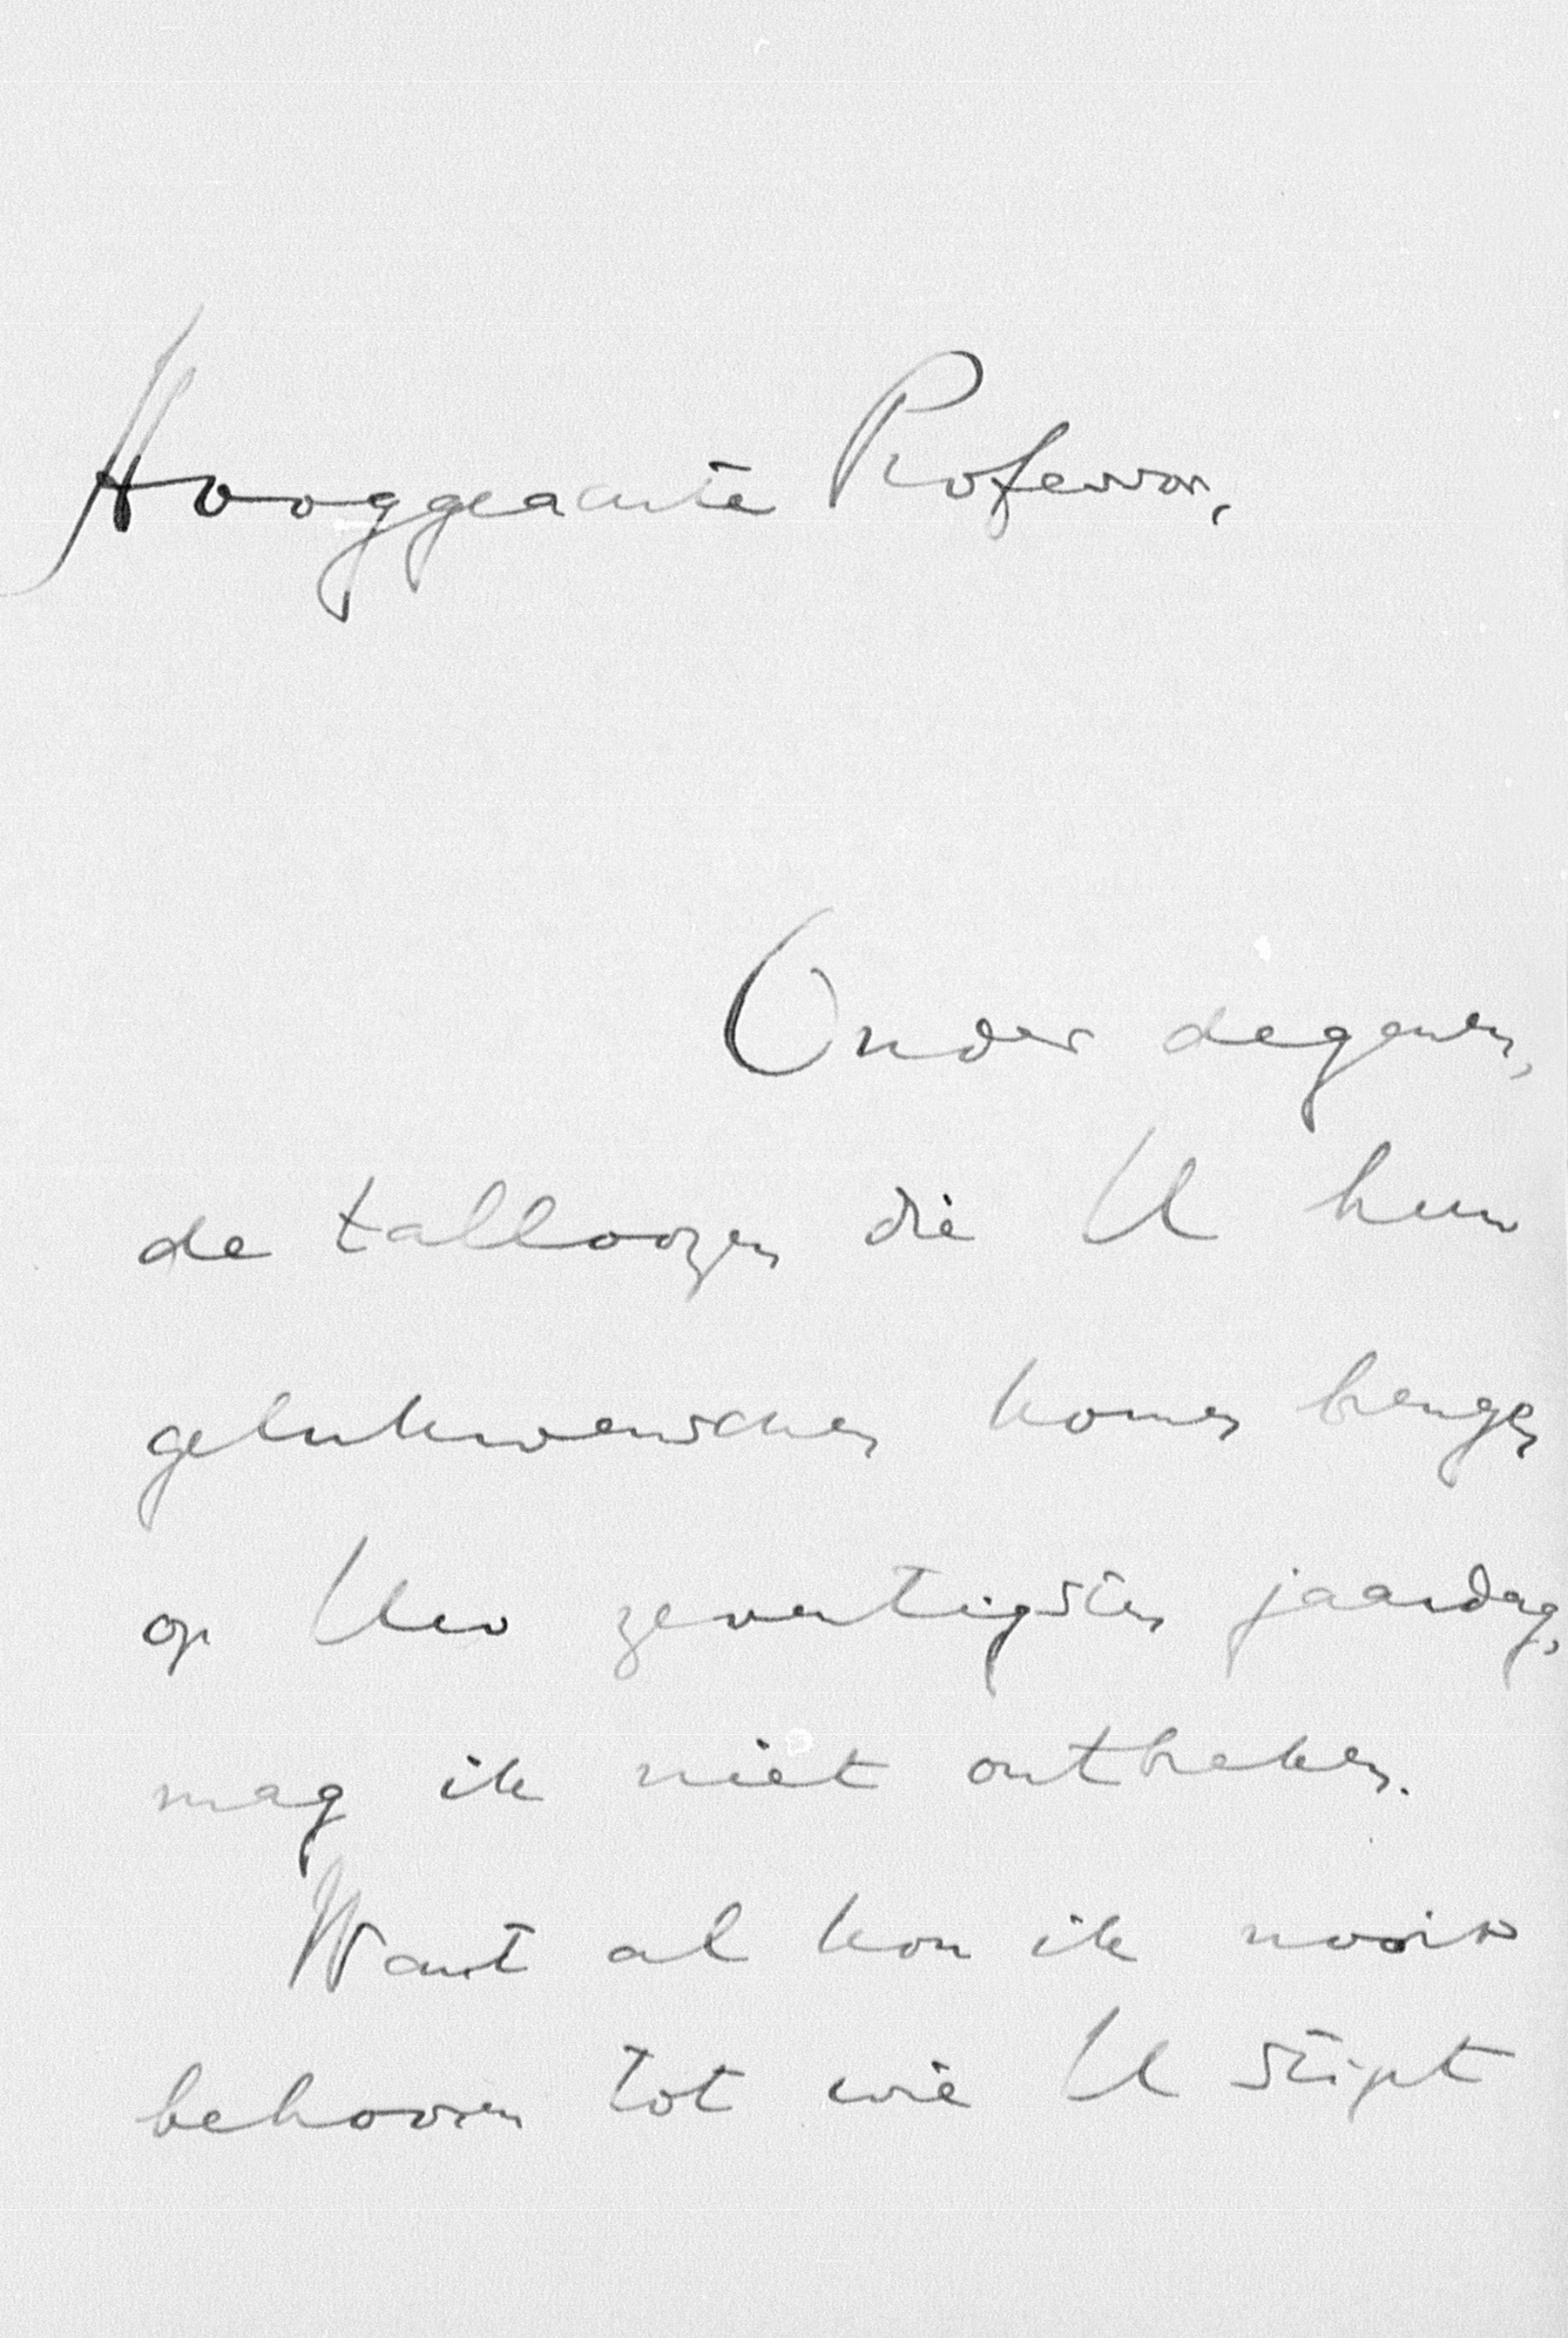 Hooggeachte Professor,
Onder degenen,
de talloozen die U hun
gelukwenschen komen brengen
op Uw zeventigsten jaardag,
mag ik niet ontbreken.
Want al kon ik nooit
behooren tot wie U stipt